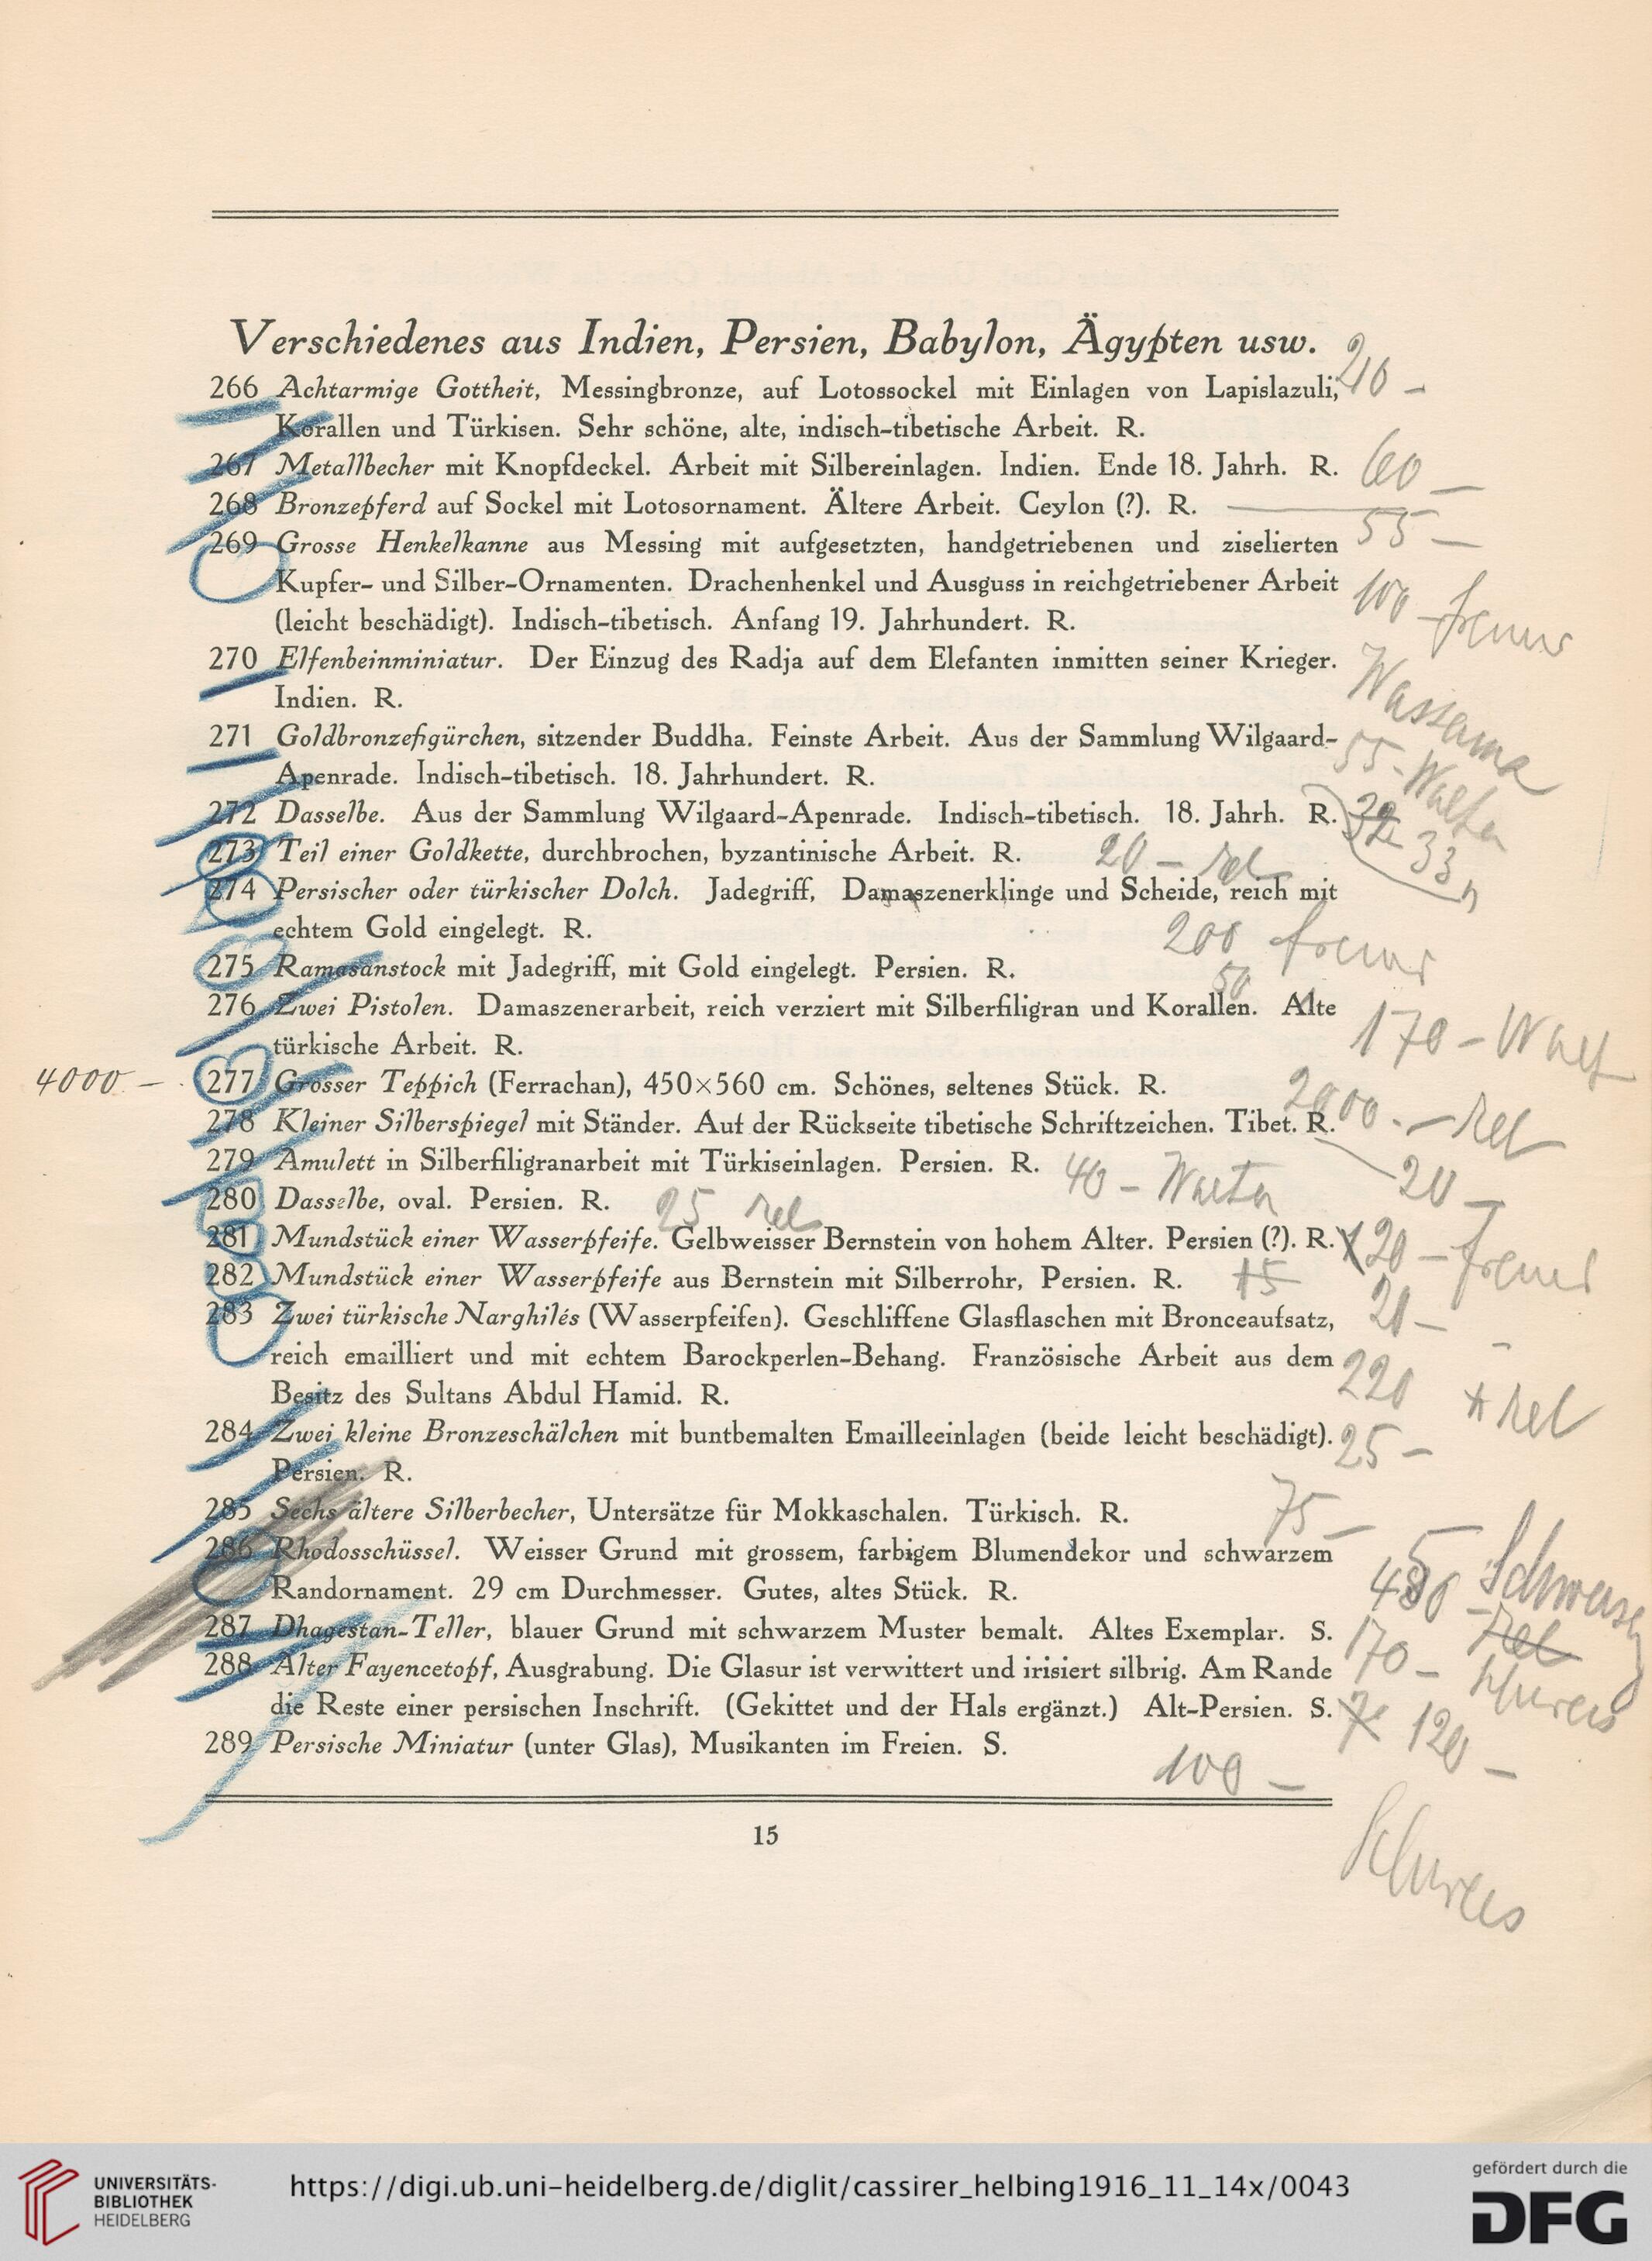 Verschiedenes aus Indien, Persien, Babylon, Ägypten usw.
266 Achtarmige Gottheit, Messingbronze, auf Lotossockel mit Einlagen von Lapislazuli,
Korallen und Türkisen. Sehr schöne, alte, indisch-tibetische Arbeit. R.
267 Metallbecher mit Knopfdeckel. Arbeit mit Silbereinlagen. Indien. Ende 18. Jahrh. R. 60 –
268 Bronzepferd auf Sockel mit Lotosornament. Ältere Arbeit. Ceylon (?). R. 55 –
269 Grosse Henkelkanne aus Messing mit aufgesetzten, handgetriebenen und ziselierten
Kupfer- und Silber-Ornamenten. Drachenhenkel und Ausguss in reichgetriebener Arbeit 100 –
(leicht beschädigt). Indisch-tibetisch. Anfang 19. Jahrhundert. R.
270 Elfenbeinminiatur. Der Einzug des Radja auf dem Elefanten inmitten seiner Krieger.
Indien. R.
271 Goldbronzefigürchen, sitzender Buddha. Feinste Arbeit. Aus der Sammlung Wilgaard- 55 –
Apenrade. Indisch-tibetisch. 18. Jahrhundert. R.
272 Dasselbe. Aus der Sammlung Wilgaard-Apenrade. Indisch-tibetisch. 18. Jahrh. R. 33
273 Teil einer Goldkette, durchbrochen, byzantinische Arbeit. R. 20 –
274 Persischer oder türkischer Dolch. Jadegriff, Damaszenerklinge und Scheide, reich mit
echtem Gold eingelegt. R. 200
275 Ramasanstock mit Jadegriff, mit Gold eingelegt. Persien. R. 50
276 Zwei Pistolen. Damaszenerarbeit, reich verziert mit Silberfiligran und Korallen. Alte
türkische Arbeit. R. 170 –
4000 – 277 Grosser Teppich (Ferrachan), 450×560 cm. Schönes, seltenes Stück. R. 2000 –
278 Kleiner Silberspiegel mit Ständer. Auf der Rückseite tibetische Schriftzeichen. Tibet. R. 20 –
279 Amulett in Silberfiligranarbeit mit Türkiseinlagen. Persien. R. 40 –
280 Dasselbe, oval. Persien. R. 25
281 Mundstück einer Wasserpfeife. Gelbweisser Bernstein von hohem Alter. Persien (?). R. 20 –
282 Mundstück einer Wasserpfeife aus Bernstein mit Silberrohr, Persien. R. 15
283 Zwei türkische Narghilés (Wasserpfeifen). Geschliffene Glasflaschen mit Bronceaufsatz,
reich emailliert und mit echtem Barockperlen-Behang. Französische Arbeit aus dem 220
Besitz des Sultans Abdul Hamid. R.
284 Zwei kleine Bronzeschälchen mit buntbemalten Emailleeinlagen (beide leicht beschädigt). 25 –
Persien. R.
285 Sechs ältere Silberbecher, Untersätze für Mokkaschalen. Türkisch. R. 75 –
286 Rhodosschüssel. Weisser Grund mit grossem, farbigem Blumendekor und schwarzem
Randornament. 29 cm Durchmesser. Gutes, altes Stück. R.
287 Dhagestan-Teller, blauer Grund mit schwarzem Muster bemalt. Altes Exemplar. S. 170 –
288 Alter Fayencetopf, Ausgrabung. Die Glasur ist verwittert und irisiert silbrig. Am Rande
die Reste einer persischen Inschrift. (Gekittet und der Hals ergänzt.) Alt-Persien. S. 120 –
289 Persische Miniatur (unter Glas), Musikanten im Freien. S. 100 –
15
UNIVERSITÄTS-
BIBLIOTHEK
HEIDELBERG
https://digi.ub.uni-heidelberg.de/diglit/cassirer_helbing1916_11_14x/0043
gefördert durch die
DFG